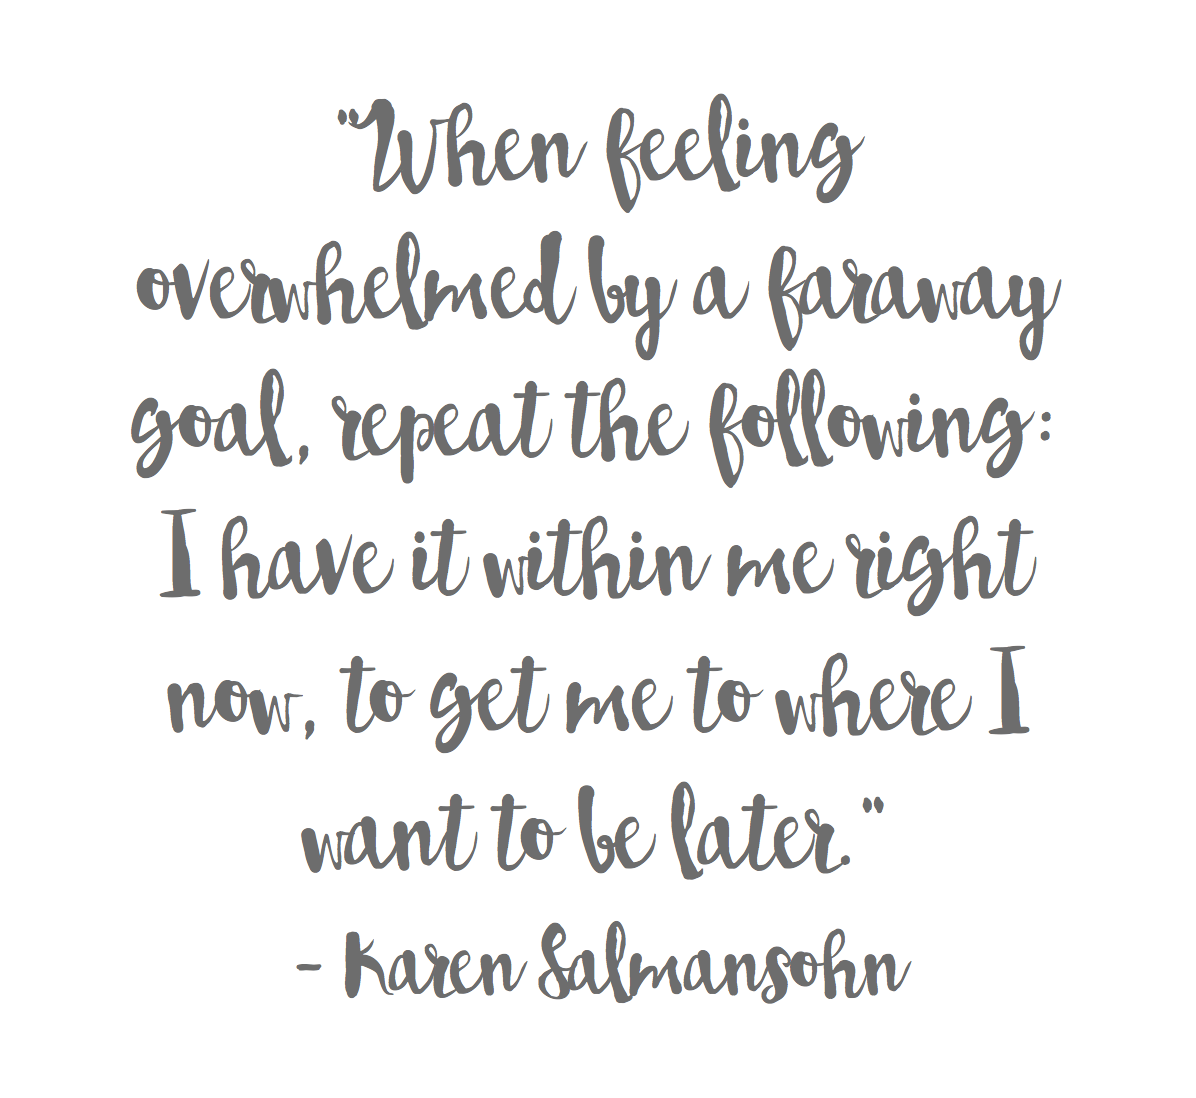 "When feeling
overwhelmed by a faraway
goal, repeat the following:
I have it within me right
now, to get me to where I
want to be later."
- Karen Salmansohn